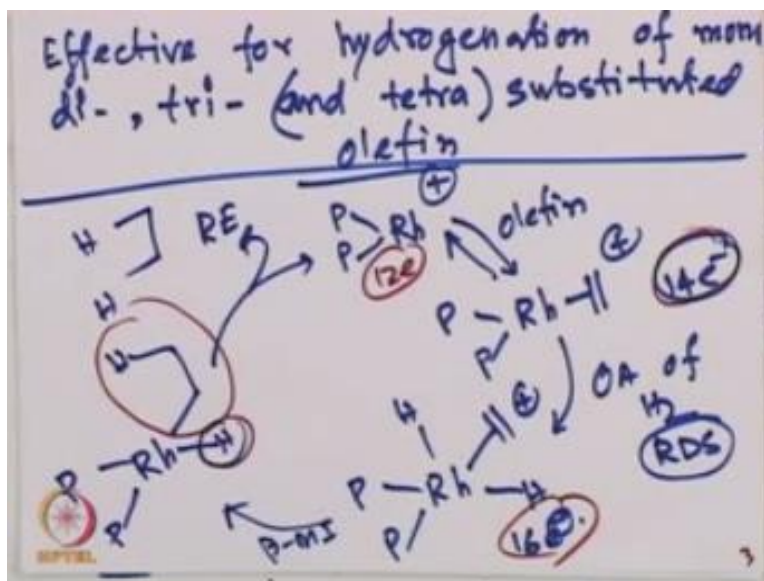 Effective for hydrogenation of mono
di-, tri- (and tetra) substituted
olefin
H
RE
P
P
Rh
+
12e
olefin
P
P
Rh
+
14e-
OA of
H2
RDS
H
+
P
P
Rh
H
16e-
β-MI
H
H
P
P
Rh
H
NPTEL
3